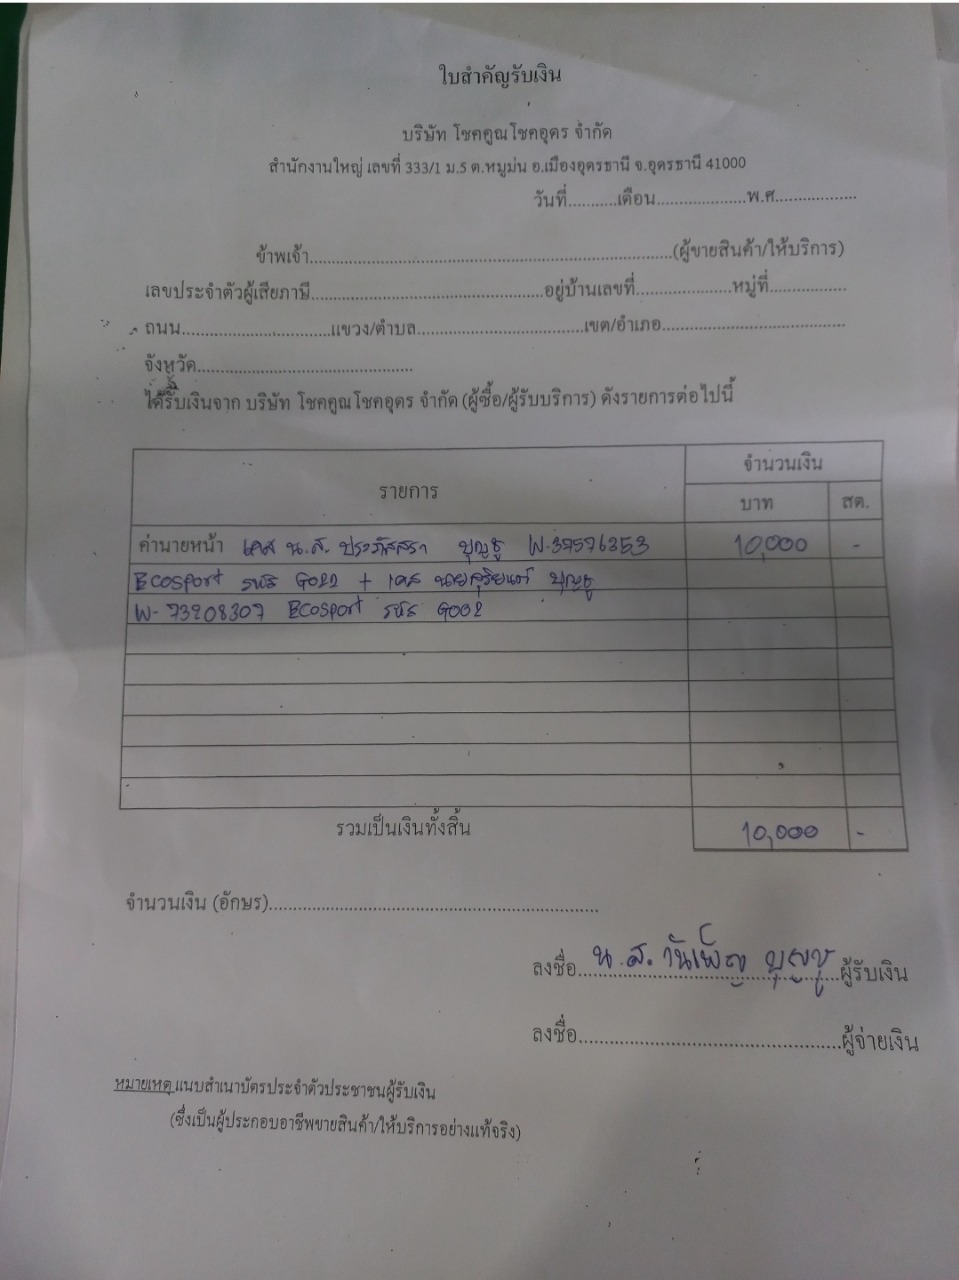 ใบสำคัญรับเงิน
บริษัท โชคคูณโชคอุดร จำกัด
สำนักงานใหญ่ เลขที่ 333/1 ม.5 ต.หมูม่น อ.เมืองอุดรธานี จ.อุดรธานี 41000
วันที่...........เดือน...................พ.ศ.................
ข้าพเจ้า..........................................................................(ผู้ขายสินค้า/ให้บริการ)
เลขประจำตัวผู้เสียภาษี...............................................อยู่บ้านเลขที่....................หมู่ที่................
ถนน..............................แขวง/ตำบล..................................เขต/อำเภอ.....................................
จังหวัด............................................
ได้รับเงินจาก บริษัท โชคคูณโชคอุดร จำกัด (ผู้ซื้อ/ผู้รับบริการ) ดังรายการต่อไปนี้
รายการ จำนวนเงิน
บาท สต.
ค่านายหน้า เคส น.ส. ประภัสสรา บุญชู W-37576353 10,000 -
Ecosport รหัส G022 + เคส นายสุริยนต์ บุญชู
W-73208307 Ecosport รหัส G002
รวมเป็นเงินทั้งสิ้น 10,000 -
จำนวนเงิน (อักษร)..................................................................
ลงชื่อ น.ส. วันเพ็ญ บุญชู ผู้รับเงิน
ลงชื่อ.....................................................ผู้จ่ายเงิน
หมายเหตุ แนบสำเนาบัตรประจำตัวประชาชนผู้รับเงิน
(ซึ่งเป็นผู้ประกอบอาชีพขายสินค้า/ให้บริการอย่างแท้จริง)